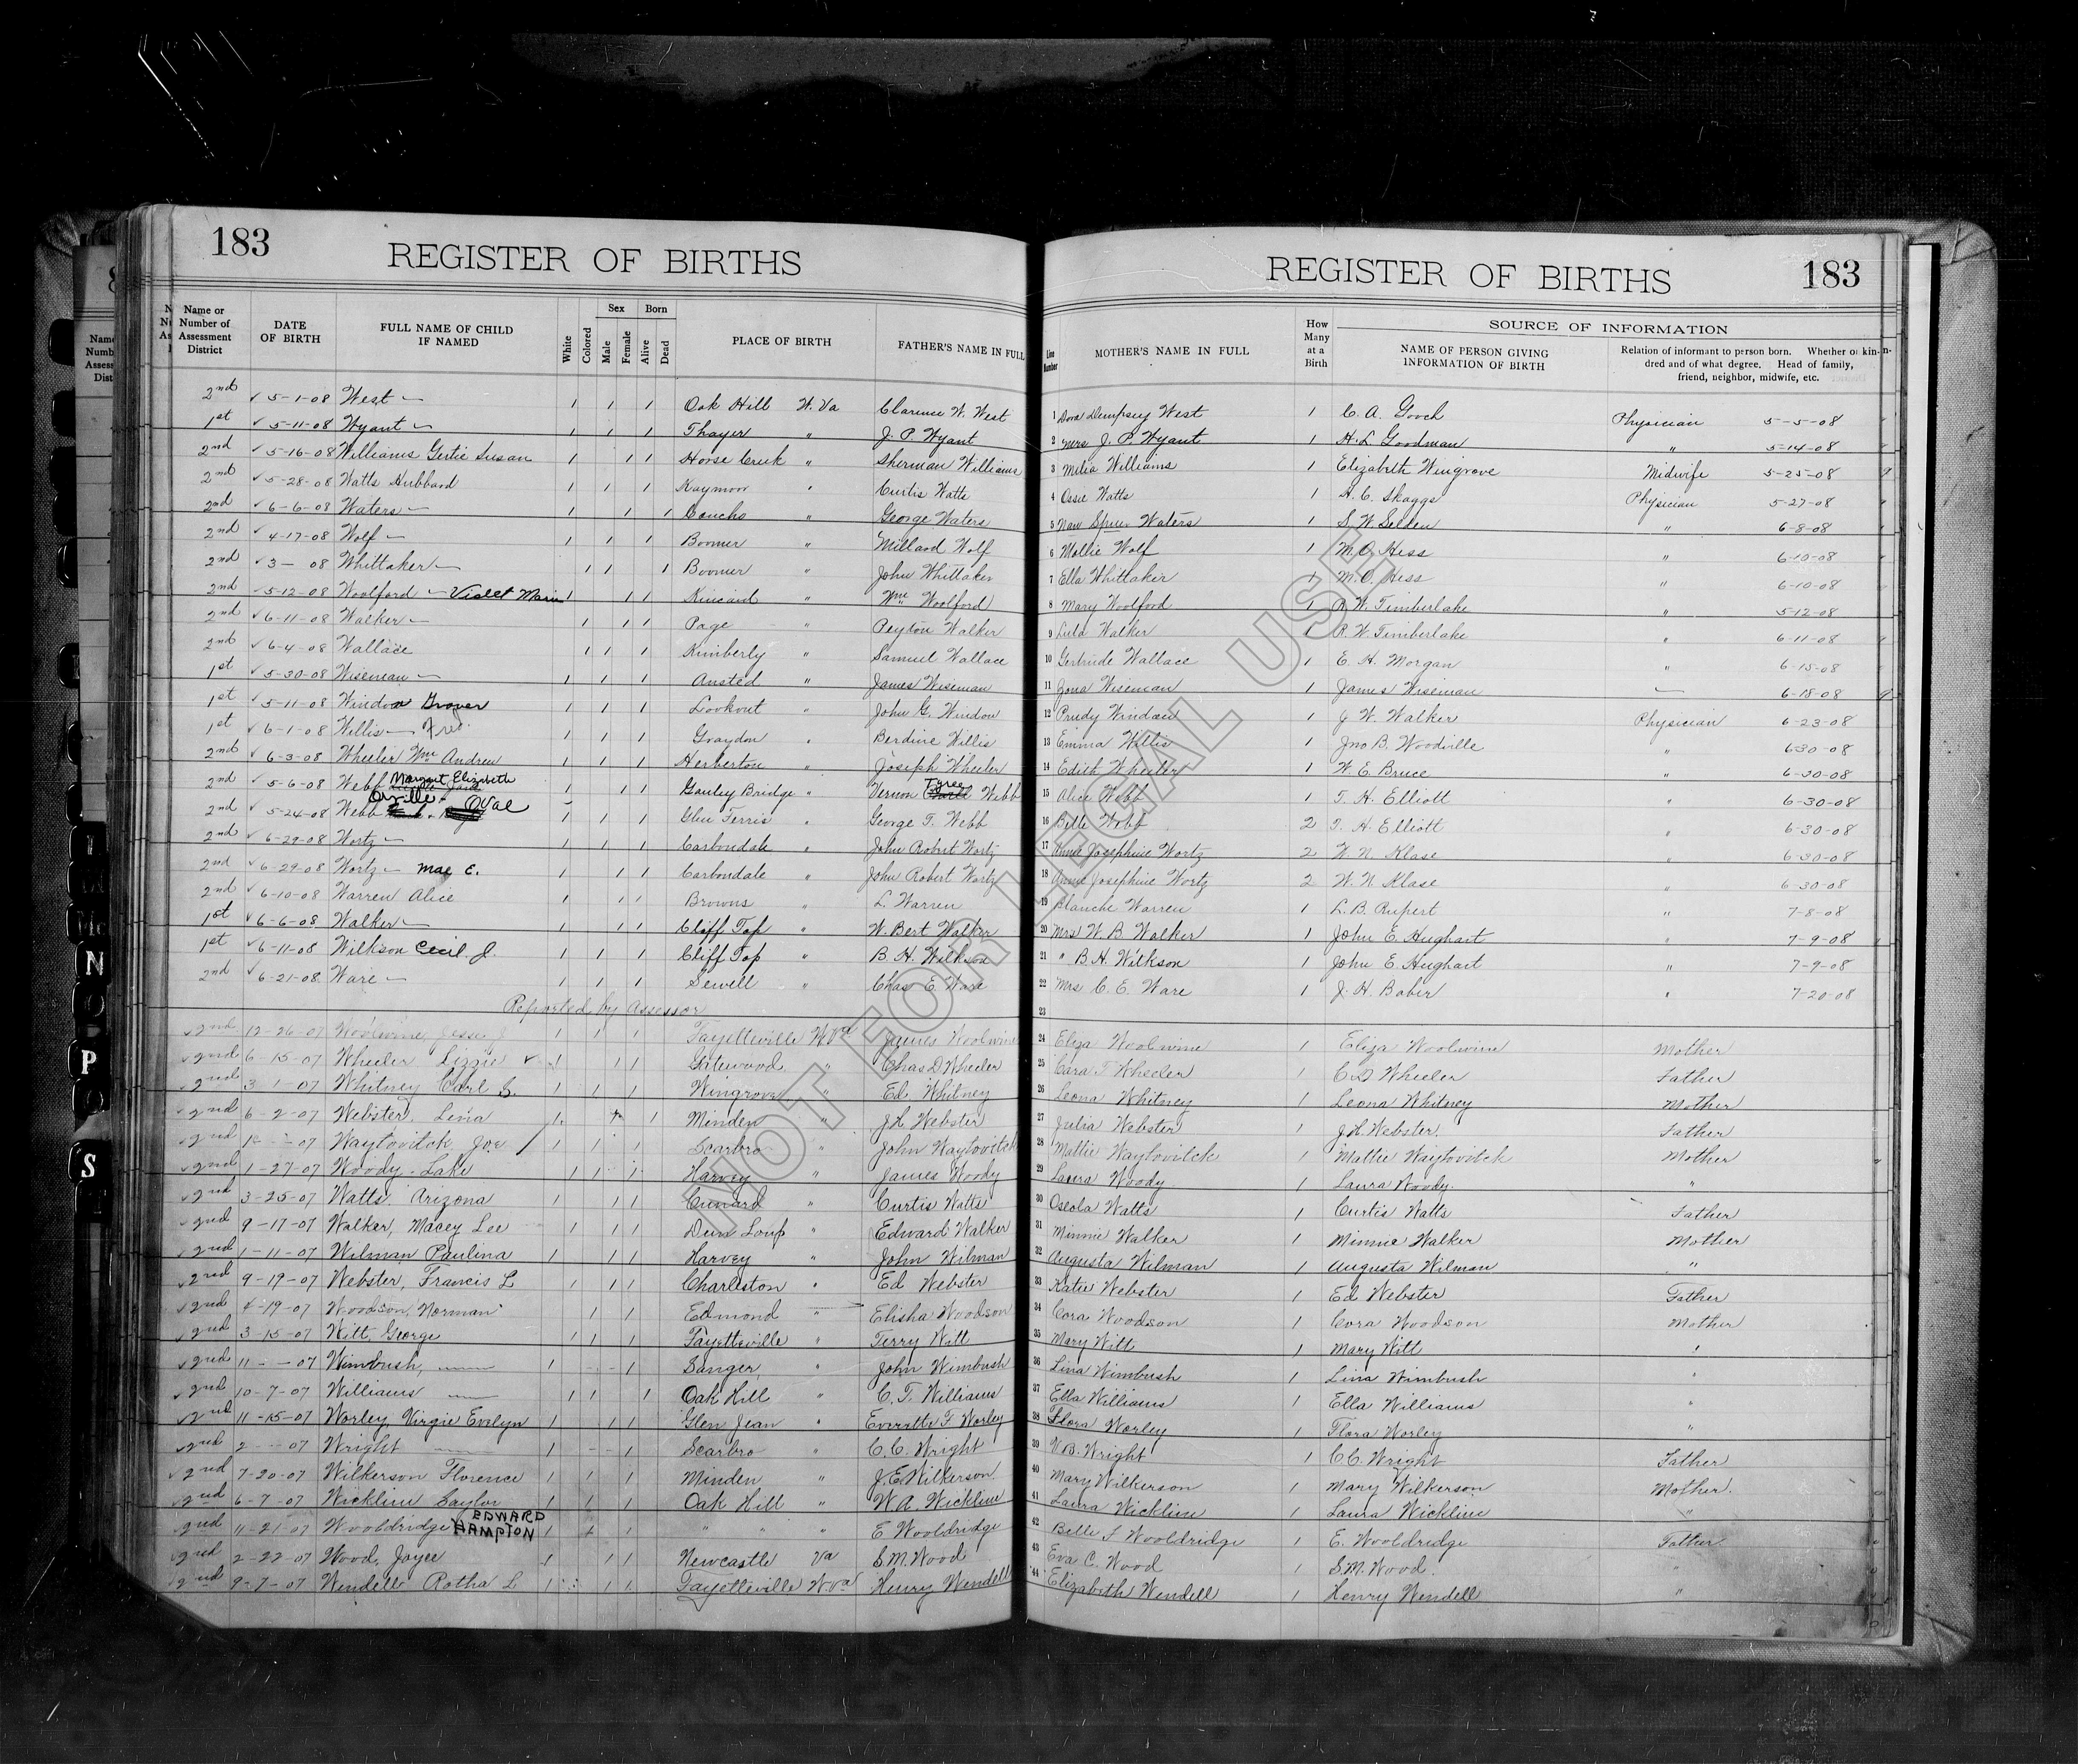 183
REGISTER OF BIRTHS
Name or Number of Assessment District
DATE OF BIRTH
FULL NAME OF CHILD IF NAMED
White
Colored
Sex
Male
Female
Born
Alive
Dead
PLACE OF BIRTH
FATHER'S NAME IN FULL
REGISTER OF BIRTHS
183
Line Number
MOTHER'S NAME IN FULL
How Many at a Birth
SOURCE OF INFORMATION
NAME OF PERSON GIVING INFORMATION OF BIRTH
Relation of informant to person born. Whether or kindred and of what degree. Head of family, friend, neighbor, midwife, etc.
2nd 5-1-08 West Oak Hill W. Va Clarence W. West 1 Dora Dempsey West 1 C. A. Gooch Physician 5-5-08
1st 5-11-08 Wyant Thayer " J. P. Wyant 2 Mrs J. P. Wyant 1 H. L. Goodman " 5-14-08
2nd 5-16-08 Williams Gertie Susan Horse Creek " Sherman Williams 3 Melia Williams 1 Elizabeth Wingrove Midwife 5-25-08
2nd 5-28-08 Watts Hubbard Kaymoor " Curtis Watts 4 Ossie Watts 1 H. C. Skaggs Physician 5-27-08
2nd 6-6-08 Waters " George Waters 5 Waters 1 S. W. Selden " 6-8-08
2nd 4-17-08 Wolf Boomer " Millard Wolf 6 Mollie Wolf 1 M. O. Hess " 6-10-08
2nd 3- 08 Whittaker Boomer " John Whittaker 7 Ella Whittaker 1 M. O. Hess " 6-10-08
2nd 5-12-08 Woolford Violet Marie Kincaid " Wm Woolford 8 Mary Woolford 1 R. W. Timberlake " 5-12-08
2nd 6-11-08 Walker Page " Peyton Walker 9 Lula Walker 1 R. W. Timberlake " 6-11-08
2nd 6-4-08 Wallace Kimberly " Samuel Wallace 10 Gertrude Wallace 1 E. H. Morgan " 6-15-08
1st 5-30-08 Wiseman Ansted " James Wiseman 11 Zona Wiseman 1 James Wiseman 6-18-08
1st 5-11-08 Windon Grover Lookout " John G. Windon 12 Prudy Windon 1 J. W. Walker Physician 6-23-08
1st 6-1-08 Willis Fred Graydon " Berdine Willis 13 Emma Willis 1 Jno B. Woodville " 6-30-08
2nd 6-3-08 Wheeler Wm Andrew Herberton " Joseph Wheeler 14 Edith Wheeler 1 W. E. Bruce " 6-30-08
2nd 5-6-08 Webb Margaret Elizabeth Gauley Bridge " Vernon Tyree Webb 15 Alice Webb 1 T. H. Elliott " 6-30-08
2nd 5-24-08 Webb Orville Oval Glen Ferris " George T. Webb 16 Belle Webb 2 T. H. Elliott " 6-30-08
2nd 6-29-08 Wortz Carbondale " John Robert Wortz 17 Annie Josephine Wortz 2 W. N. Klase " 6-30-08
2nd 6-29-08 Wortz Mae E. Carbondale " John Robert Wortz 18 Annie Josephine Wortz 2 W. N. Klase " 6-30-08
2nd 6-10-08 Warren Alice Browns " L. Warren 19 Blanche Warren 1 L. B. Rupert " 7-8-08
1st 6-6-08 Walker Cliff Top " W. Bert Walker 20 Mrs W. B. Walker 1 John E. Hughart " 7-9-08
1st 6-11-08 Wilkson Cecil J. Cliff Top " B. H. Wilkson 21 " B. H. Wilkson 1 John E. Hughart " 7-9-08
2nd 6-21-08 Ware Sewell " Chas E. Ware 22 Mrs C. E. Ware 1 J. H. Baber " 7-20-08
Reported by Assessor 23
2nd 12-26-07 Woolwine, Jesse J Fayetteville W. Va James Woolwine 24 Eliza Woolwine 1 Eliza Woolwine Mother
2nd 6-15-07 Wheeler Lizzie Gatewood " Chas D Wheeler 25 Cara T Wheeler 1 C D Wheeler Father
2nd 3-1-07 Whitney Carl S. Wingrove " Ed Whitney 26 Leona Whitney 1 Leona Whitney Mother
2nd 6-2-07 Webster, Lena Minden " J H Webster 27 Julia Webster 1 J. H. Webster Father
2nd 07 Waytovitck Joe Scarbro " John Waytovitck 28 Mattie Waytovitck 1 Mattie Waytovitck Mother
2nd 1-27-07 Woody - Lake Harvey " James Woody 29 Laura Woody 1 Laura Woody "
2nd 3-25-07 Watts, Arizona Cunard " Curtis Watts 30 Oseola Watts 1 Curtis Watts Father
2nd 9-17-07 Walker, Macey Lee Dun Loup " Edward Walker 31 Minnie Walker 1 Minnie Walker Mother
2nd 1-11-07 Wilman Paulina Harvey " John Wilman 32 Augusta Wilman 1 Augusta Wilman "
2nd 9-19-07 Webster, Francis L Charleston " Ed Webster 33 Katie Webster 1 Ed Webster Father
2nd 4-19-07 Woodson, Norman Edmond " Elisha Woodson 34 Cora Woodson 1 Cora Woodson Mother
2nd 3-15-07 Witt, George Fayetteville " Terry Witt 35 Mary Witt 1 Mary Witt "
2nd 11- -07 Wimbush, Sanger, " John Wimbush 36 Lina Wimbush 1 Lina Wimbush "
2nd 10-7-07 Williams Oak Hill " C. T. Williams 37 Ella Williams 1 Ella Williams "
2nd 11-15-07 Worley, Virgie Evelyn Glen Jean " Everette F Worley 38 Flora Worley 1 Flora Worley "
2nd 2- -07 Wright Scarbro " C. C. Wright 39 V. B. Wright 1 C C. Wright Father
2nd 7-20-07 Wilkerson Florence Minden " J. E. Wilkerson 40 Mary Wilkerson 1 Mary Wilkerson Mother.
2nd 6-7-07 Wickline Saylor Oak Hill " W. A. Wickline 41 Laura Wickline 1 Laura Wickline "
2nd 11-21-07 Wooldridge EDWARD HAMPTON " " " E Wooldridge 42 Belle S Wooldridge 1 E. Wooldridge Father
2nd 2-22-07 Wood, Joyce Newcastle Va S. M. Wood 43 Eva C. Wood 1 S. M. Wood. "
2nd 9-7-07 Wendell Rotha L Fayetteville W. Va Henry Wendell 44 Elizabeth Wendell 1 Henry Wendell "
NOT FOR LEGAL USE
N
O
P
Q
S